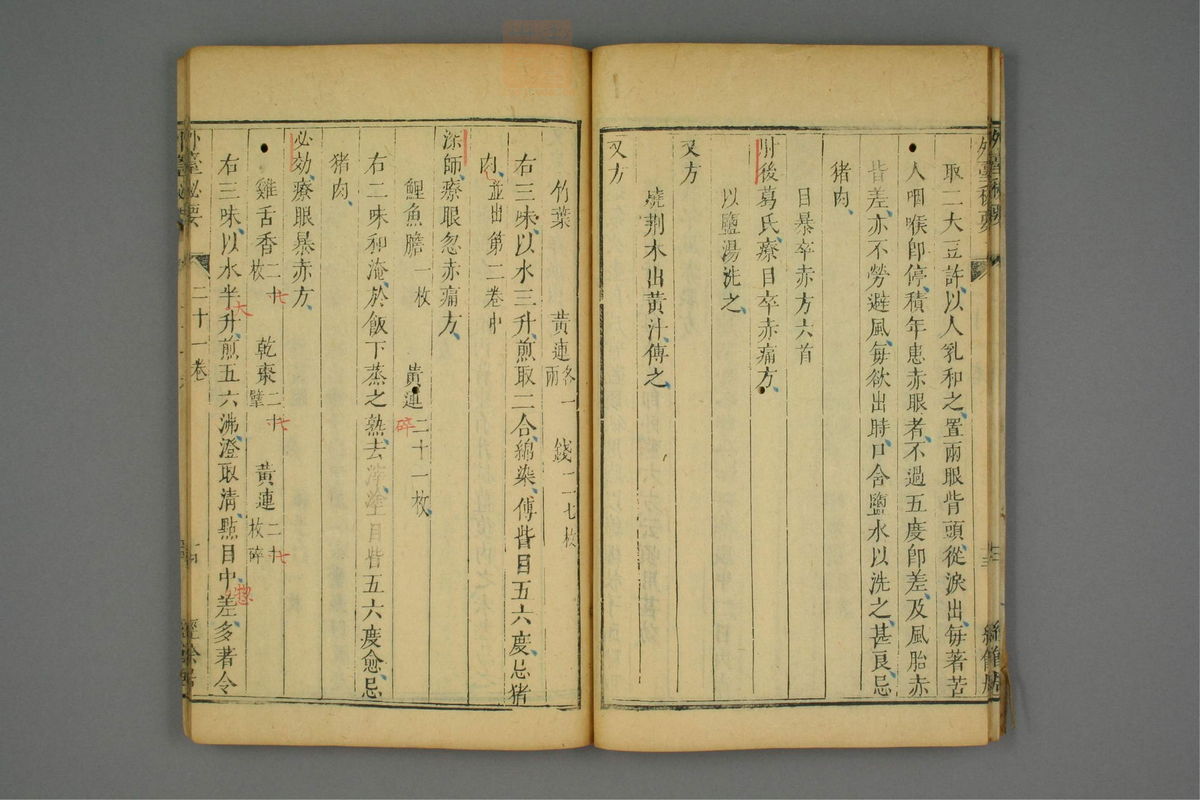 取二大豆許以人乳和之、置兩眼眥頭、從淚出、每著苦
人咽喉卽停、積年患赤眼者、不過五度卽差、及風胎赤
眥差、亦不勞避風、每欲出時、口含鹽水以洗之、甚良忌
猪肉、
目暴卒赤方六首
肘後葛氏、療目卒赤痛方、
以鹽湯洗之、
又方
燒荆木出黃汁、傅之、
又方
竹葉 黃連各一兩 錢二七枚
右三味、以水三升、煎取二合、綿染、傅眥目五六度、忌猪
肉、並出第二卷中
深師、療眼忽赤痛方、
鯉魚膽一枚 黃連二十一枚 碎
右二味和淹、於飯下蒸之熟、去滓、塗目眥五六度愈、忌
猪肉、
必効、療眼暴赤方、
雞舌香二十枚 七 乾棗二十擘 七 黃連二十枚碎 七
右三味、以水半升、大煎五六沸、澄取清、點目中、差、惣多著令
外臺秘要 二十一卷